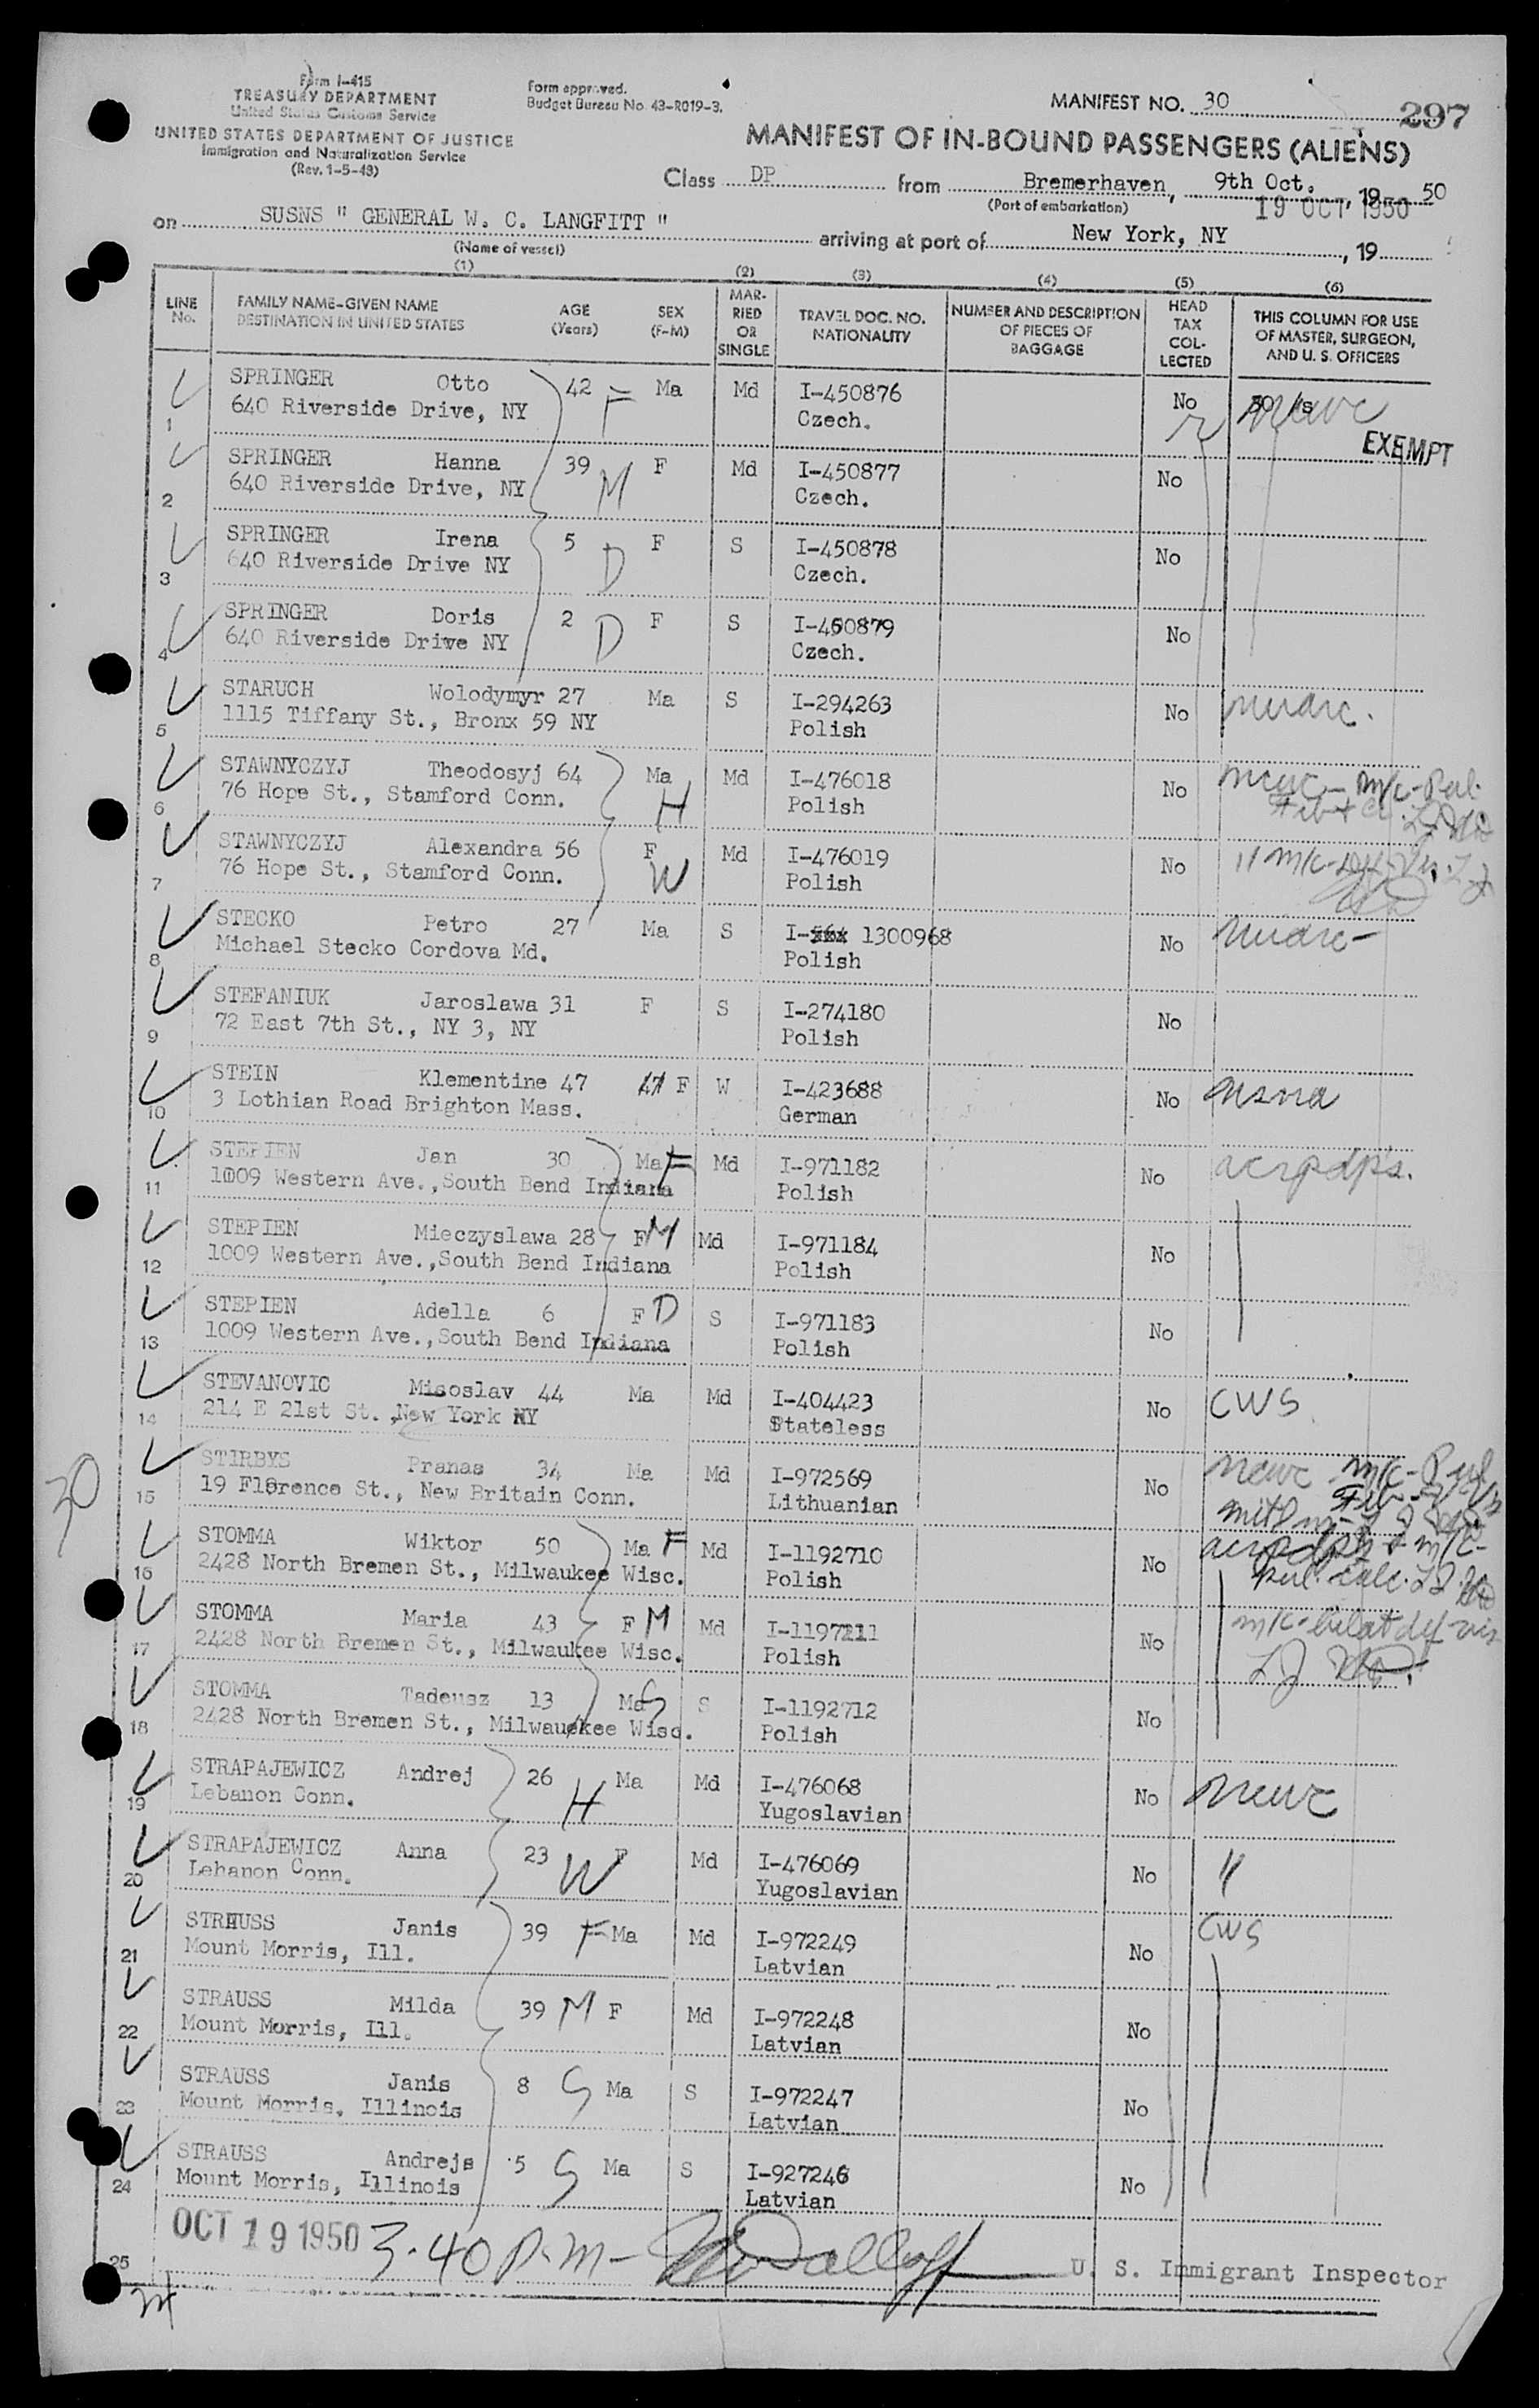 Form I-415
TREASURY DEPARTMENT
United States Customs Service
UNITED STATES DEPARTMENT OF JUSTICE
Immigration and Naturalization Service
(Rev. 1-5-49)
Form approved.
Budget Bureau No. 43-R019-3.
MANIFEST NO. 30
297
MANIFEST OF IN-BOUND PASSENGERS (ALIENS)
Class DP from Bremerhaven, 9th Oct., 19 50
(Port of embarkation)
19 OCT 1950
on SUSNS " GENERAL W. C. LANGFITT " arriving at port of New York, NY, 19
(Name of vessel)
(1) (2) (3) (4) (5) (6)
LINE No. FAMILY NAME-GIVEN NAME DESTINATION IN UNITED STATES AGE (Years) SEX (F-M) MARRIED OR SINGLE TRAVEL DOC. NO. NATIONALITY NUMBER AND DESCRIPTION OF PIECES OF BAGGAGE HEAD TAX COLLECTED THIS COLUMN FOR USE OF MASTER, SURGEON, AND U. S. OFFICERS
1 SPRINGER Otto 42 F Ma Md I-450876 No ncwc
640 Riverside Drive, NY Czech.
EXEMPT
2 SPRINGER Hanna 39 M F Md I-450877 No
640 Riverside Drive, NY Czech.
3 SPRINGER Irena 5 D F S I-450878 No
640 Riverside Drive NY Czech.
4 SPRINGER Doris 2 D F S I-450879 No
640 Riverside Drive NY Czech.
5 STARUCH Wolodymyr 27 Ma S I-294263 No
1115 Tiffany St., Bronx 59 NY Polish
6 STAWNYCZYJ Theodosyj 64 Ma H Md I-476018 No ncwc - m/c-Pul.
76 Hope St., Stamford Conn. Polish
7 STAWNYCZYJ Alexandra 56 F W Md I-476019 No " m/c-
76 Hope St., Stamford Conn. Polish
8 STECKO Petro 27 Ma S I- 1300968 No
Michael Stecko Cordova Md. Polish
9 STEFANIUK Jaroslawa 31 F S I-274180 No
72 East 7th St., NY 3, NY Polish
10 STEIN Klementine 47 47 F W I-423688 No usna
3 Lothian Road Brighton Mass. German
11 STEPIEN Jan 30 Ma F Md I-971182 No acrpdps.
1009 Western Ave.,South Bend Indiana Polish
12 STEPIEN Mieczyslawa 28 F M Md I-971184 No
1009 Western Ave.,South Bend Indiana Polish
13 STEPIEN Adella 6 F D S I-971183 No
1009 Western Ave.,South Bend Indiana Polish
14 STEVANOVIC Misoslav 44 Ma Md I-404423 No CWS
214 E 21st St.,New York NY Stateless
30
15 STIRBYS Pranas 34 Ma Md I-972569 No ncwc m/c-Pul
19 Florence St., New Britain Conn. Lithuanian
16 STOMMA Wiktor 50 Ma F Md I-1192710 No acrpdps m/c-
2428 North Bremen St., Milwaukee Wisc. Polish pul. calc.
17 STOMMA Maria 43 F M Md I-1197211 No m/c-bilat def vis
2428 North Bremen St., Milwaukee Wisc. Polish
18 STOMMA Tadeusz 13 Ma S S I-1192712 No
2428 North Bremen St., Milwaukee Wisc. Polish
19 STRAPAJEWICZ Andrej 26 H Ma Md I-476068 No ncwc
Lebanon Conn. Yugoslavian
20 STRAPAJEWICZ Anna 23 W F Md I-476069 No "
Lebanon Conn. Yugoslavian
21 STRAUSS Janis 39 F Ma Md I-972249 No CWS
Mount Morris, Ill. Latvian
22 STRAUSS Milda 39 M F Md I-972248 No
Mount Morris, Ill. Latvian
23 STRAUSS Janis 8 S Ma S I-972247 No
Mount Morris, Illinois Latvian
24 STRAUSS Andrejs 5 S Ma S I-927246 No
Mount Morris, Illinois Latvian
OCT 19 1950 3.40 P.M-
25 U. S. Immigrant Inspector
24